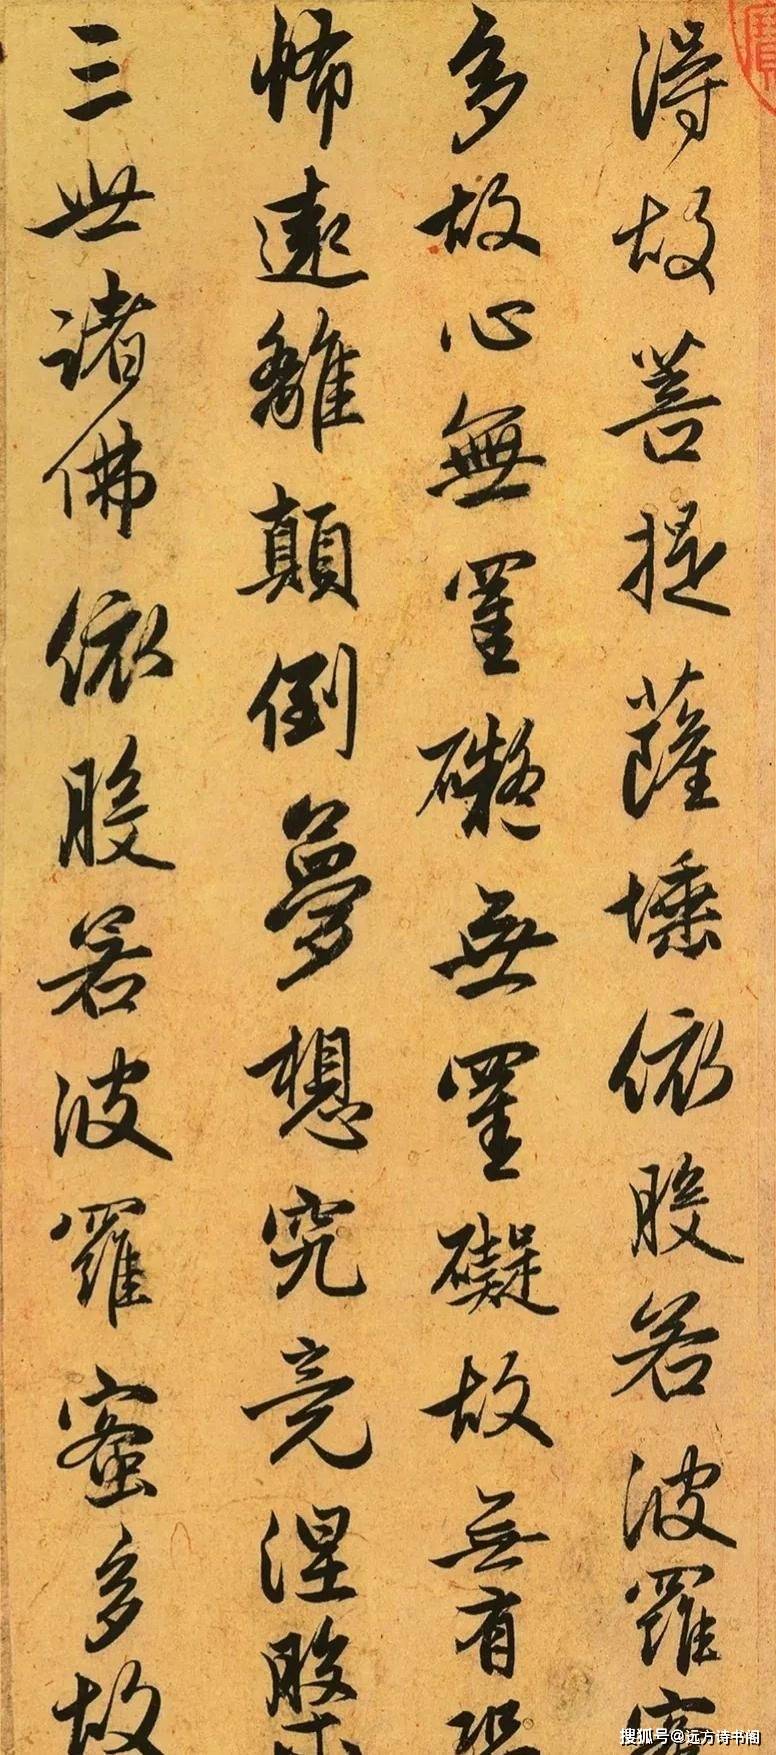 得故菩提薩埵依般若波羅蜜
多故心無罣礙無罣礙故無有恐
怖遠離顛倒夢想究竟涅槃
三世諸佛依般若波羅蜜多故
搜狐号@远方诗书阁